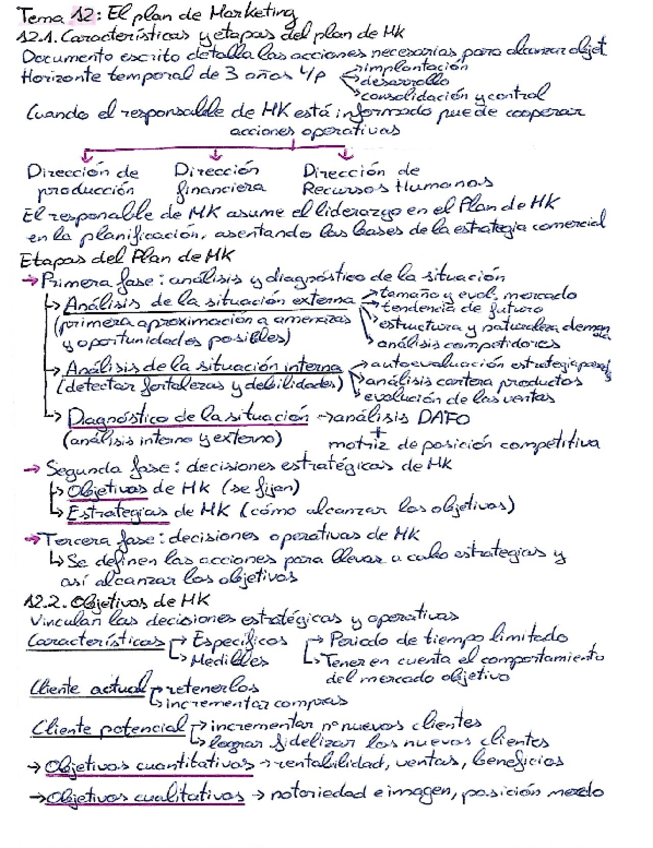 Tema 12: El plan de Marketing
12.1. Características y etapas del plan de MK
Documento escrito detalla las acciones necesarias para alcanzar objet
Horizonte temporal de 3 años l/p → implantación
→ desarrollo
→ consolidación y control
Cuando el responsable de MK está informado puede cooperar
acciones operativas
Dirección de producción
Dirección financiera
Dirección de Recursos Humanos
El responsable de MK asume el liderazgo en el Plan de MK
en la planificación, asentando las bases de la estrategia comercial
Etapas del Plan de MK
→ Primera fase: análisis y diagnóstico de la situación
↳ Análisis de la situación externa → tamaño y evol. mercado
(primera aproximación a amenazas → tendencia de futuro
y oportunidades posibles) → estructura y naturaleza deman
→ análisis competidores
↳ Análisis de la situación interna → autoevaluación estrategia
(detectar fortalezas y debilidades) → análisis cartera productos
→ evolución de las ventas
↳ Diagnóstico de la situación → análisis DAFO
+
(análisis interno y externo) matriz de posición competitiva
→ Segunda fase: decisiones estratégicas de MK
↳ Objetivos de MK (se fijan)
↳ Estrategias de MK (cómo alcanzar los objetivos)
→ Tercera fase: decisiones operativas de MK
↳ Se definen las acciones para llevar a cabo estrategias y
así alcanzar los objetivos
12.2. Objetivos de MK
Vinculan las decisiones estratégicas y operativas
Características → Específicos → Periodo de tiempo limitado
↳ Medibles ↳ Tener en cuenta el comportamiento
del mercado objetivo
Cliente actual → retenerlos
↳ incrementar compras
Cliente potencial → incrementar nº nuevos clientes
↳ lograr fidelizar los nuevos clientes
→ Objetivos cuantitativos → rentabilidad, ventas, beneficios
→ Objetivos cualitativos → notoriedad e imagen, posición mercado